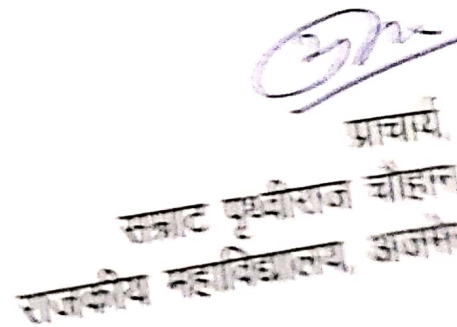 प्राचार्य,
सम्राट पृथ्वीराज चौहान
राजकीय महाविद्यालय, अजमेर